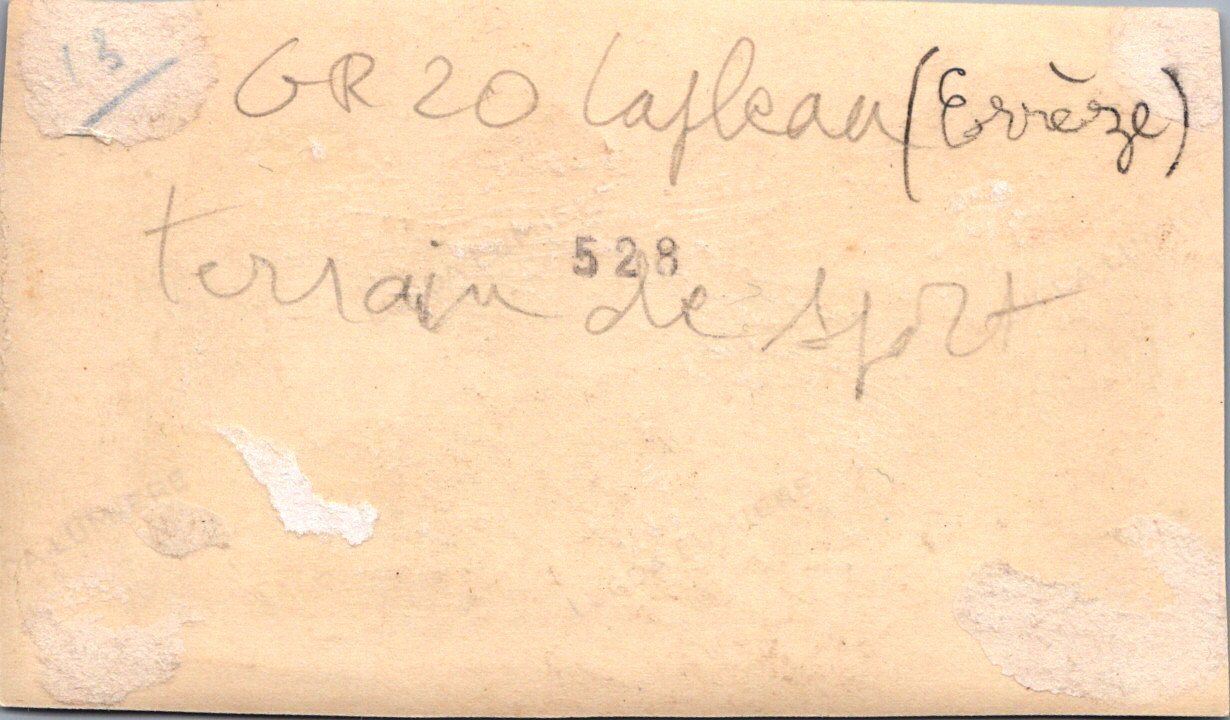 13
GR 20 Lapleau (Corrèze)
528
terrain de sport
LUMIERE